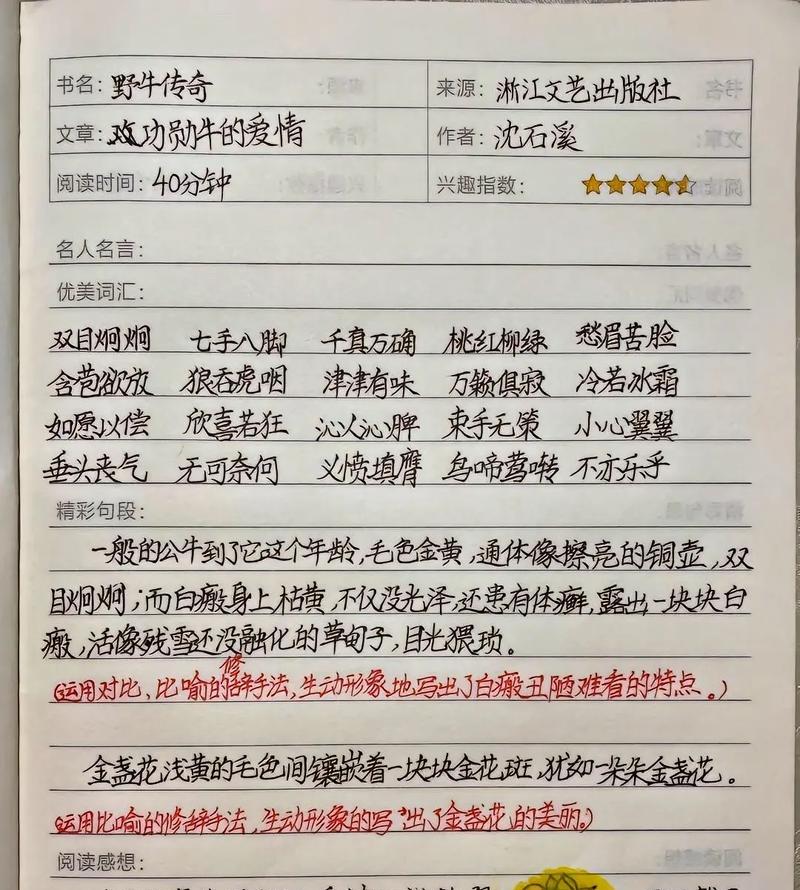 书名：野牛传奇 来源：浙江文艺出版社
文章：功勋牛的爱情 作者：沈石溪
阅读时间：40分钟 兴趣指数：
名人名言：
优美词汇：
双目炯炯 七手八脚 千真万确 桃红柳绿 愁眉苦脸
含苞欲放 狼吞虎咽 津津有味 万籁俱寂 冷若冰霜
如愿以偿 欣喜若狂 沁人沁脾 束手无策 小心翼翼
垂头丧气 无可奈何 义愤填膺 鸟啼莺啭 不亦乐乎
精彩句段：
一般的公牛到了它这个年龄，毛色金黄，通体像擦亮的铜壶，双
目炯炯；而白瘢身上枯黄，不仅没光泽，还患有体癣，露出一块块白
瘢，活像残雪还没融化的草甸子，目光猥琐。
（运用对比、比喻的修辞手法，生动形象地写出了白瘢丑陋难看的特点。）
金盏花浅黄的毛色间镶嵌着一块块金花斑，犹如一朵朵金盏花。
（运用比喻的修辞手法，生动形象的写出了金盏花的美丽。）
阅读感想：